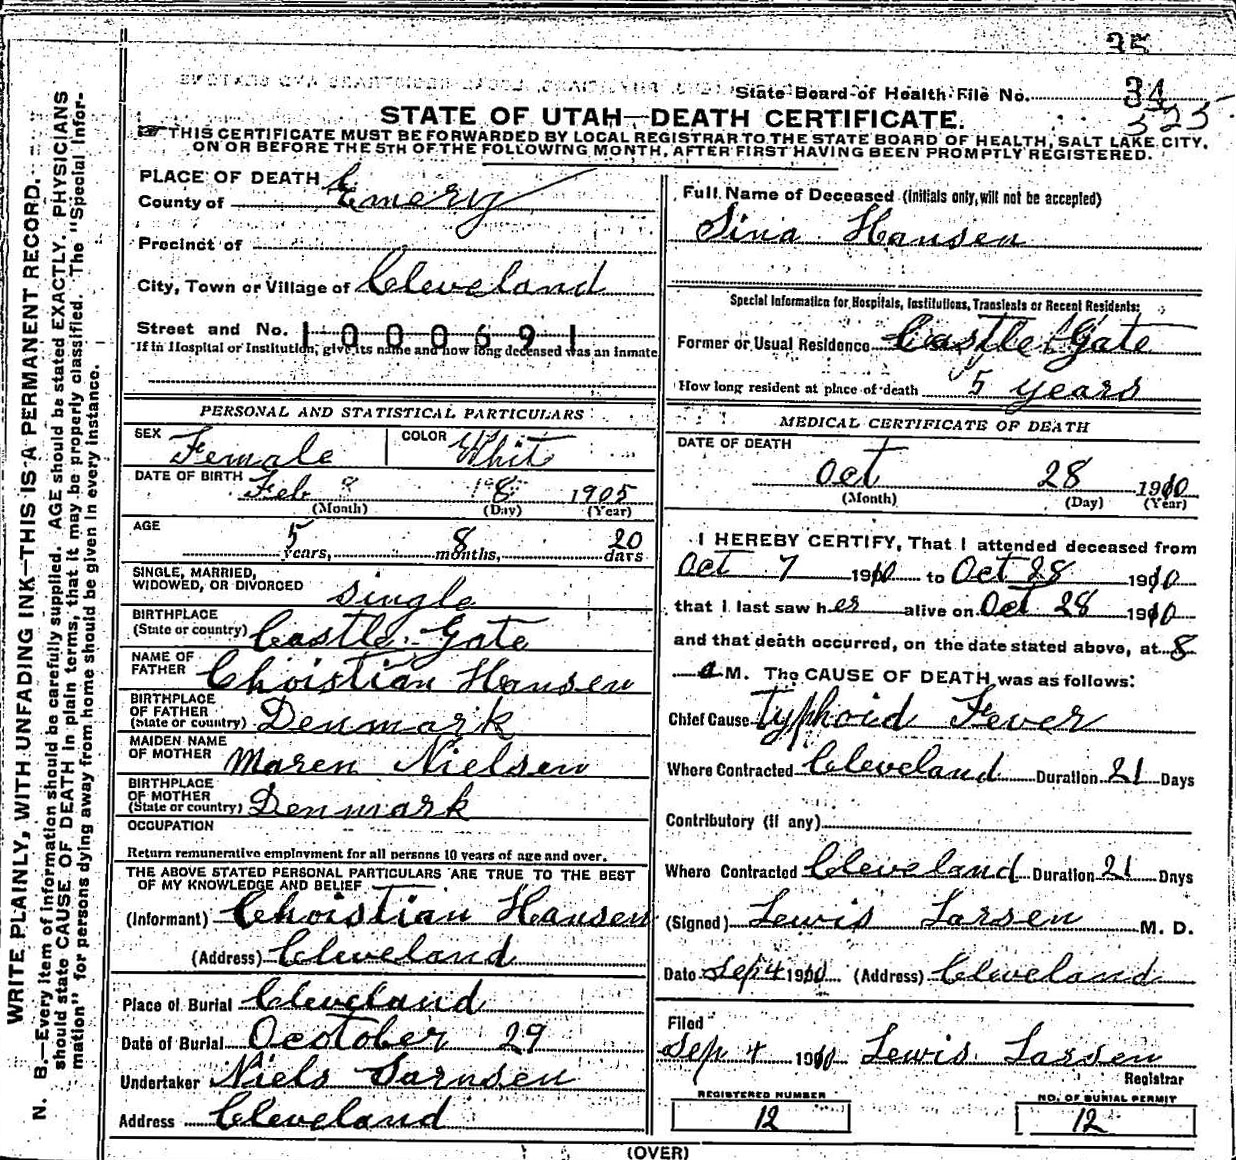 35
State Board of Health File No. 34
325
STATE OF UTAH—DEATH CERTIFICATE.
THIS CERTIFICATE MUST BE FORWARDED BY LOCAL REGISTRAR TO THE STATE BOARD OF HEALTH, SALT LAKE CITY,
ON OR BEFORE THE 5TH OF THE FOLLOWING MONTH, AFTER FIRST HAVING BEEN PROMPTLY REGISTERED.
WRITE PLAINLY, WITH UNFADING INK—THIS IS A PERMANENT RECORD.
N. B.—Every item of information should be carefully supplied. AGE should be stated EXACTLY. PHYSICIANS
should state CAUSE OF DEATH in plain terms, that it may be properly classified. The "Special Infor-
mation" for persons dying away from home should be given in every instance.
PLACE OF DEATH
County of Emery
Precinct of
City, Town or Village of Cleveland
Street and No. 1000691
If in Hospital or Institution, give its name and how long deceased was an inmate
PERSONAL AND STATISTICAL PARTICULARS
SEX Female COLOR Whit
DATE OF BIRTH Feb 8 1905
(Month) (Day) (Year)
AGE
5 years, 8 months, 20 days
SINGLE, MARRIED,
WIDOWED, OR DIVORCED single
BIRTHPLACE
(State or country) Castle Gate
NAME OF
FATHER Christian Hansen
BIRTHPLACE
OF FATHER
(State or country) Denmark
MAIDEN NAME
OF MOTHER Maren Nielsen
BIRTHPLACE
OF MOTHER
(State or country) Denmark
OCCUPATION
Return remunerative employment for all persons 10 years of age and over.
THE ABOVE STATED PERSONAL PARTICULARS ARE TRUE TO THE BEST
OF MY KNOWLEDGE AND BELIEF
(Informant) Christian Hansen
(Address) Cleveland
Place of Burial Cleveland
Date of Burial Ocotober 29
Undertaker Niels Sornsen
Address Cleveland
Full Name of Deceased (initials only, will not be accepted)
Sina Hansen
Special Information for Hospitals, Institutions, Transients or Recent Residents:
Former or Usual Residence Castle Gate
How long resident at place of death 5 years
MEDICAL CERTIFICATE OF DEATH
DATE OF DEATH
Oct 28 1910
(Month) (Day) (Year)
I HEREBY CERTIFY, That I attended deceased from
Oct 7 1910 to Oct 28 1910
that I last saw her alive on Oct 28 1910
and that death occurred, on the date stated above, at 8
a M. The CAUSE OF DEATH was as follows:
Chief Cause Typhoid Fever
Where Contracted Cleveland Duration 21 Days
Contributory (if any)
Where Contracted Cleveland Duration 21 Days
(Signed) Lewis Larsen M. D.
Date Sep 4 1910 (Address) Cleveland
Filed
Sep 4 1910 Lewis Larsen
Registrar
REGISTERED NUMBER
12
NO. OF BURIAL PERMIT
12
(OVER)